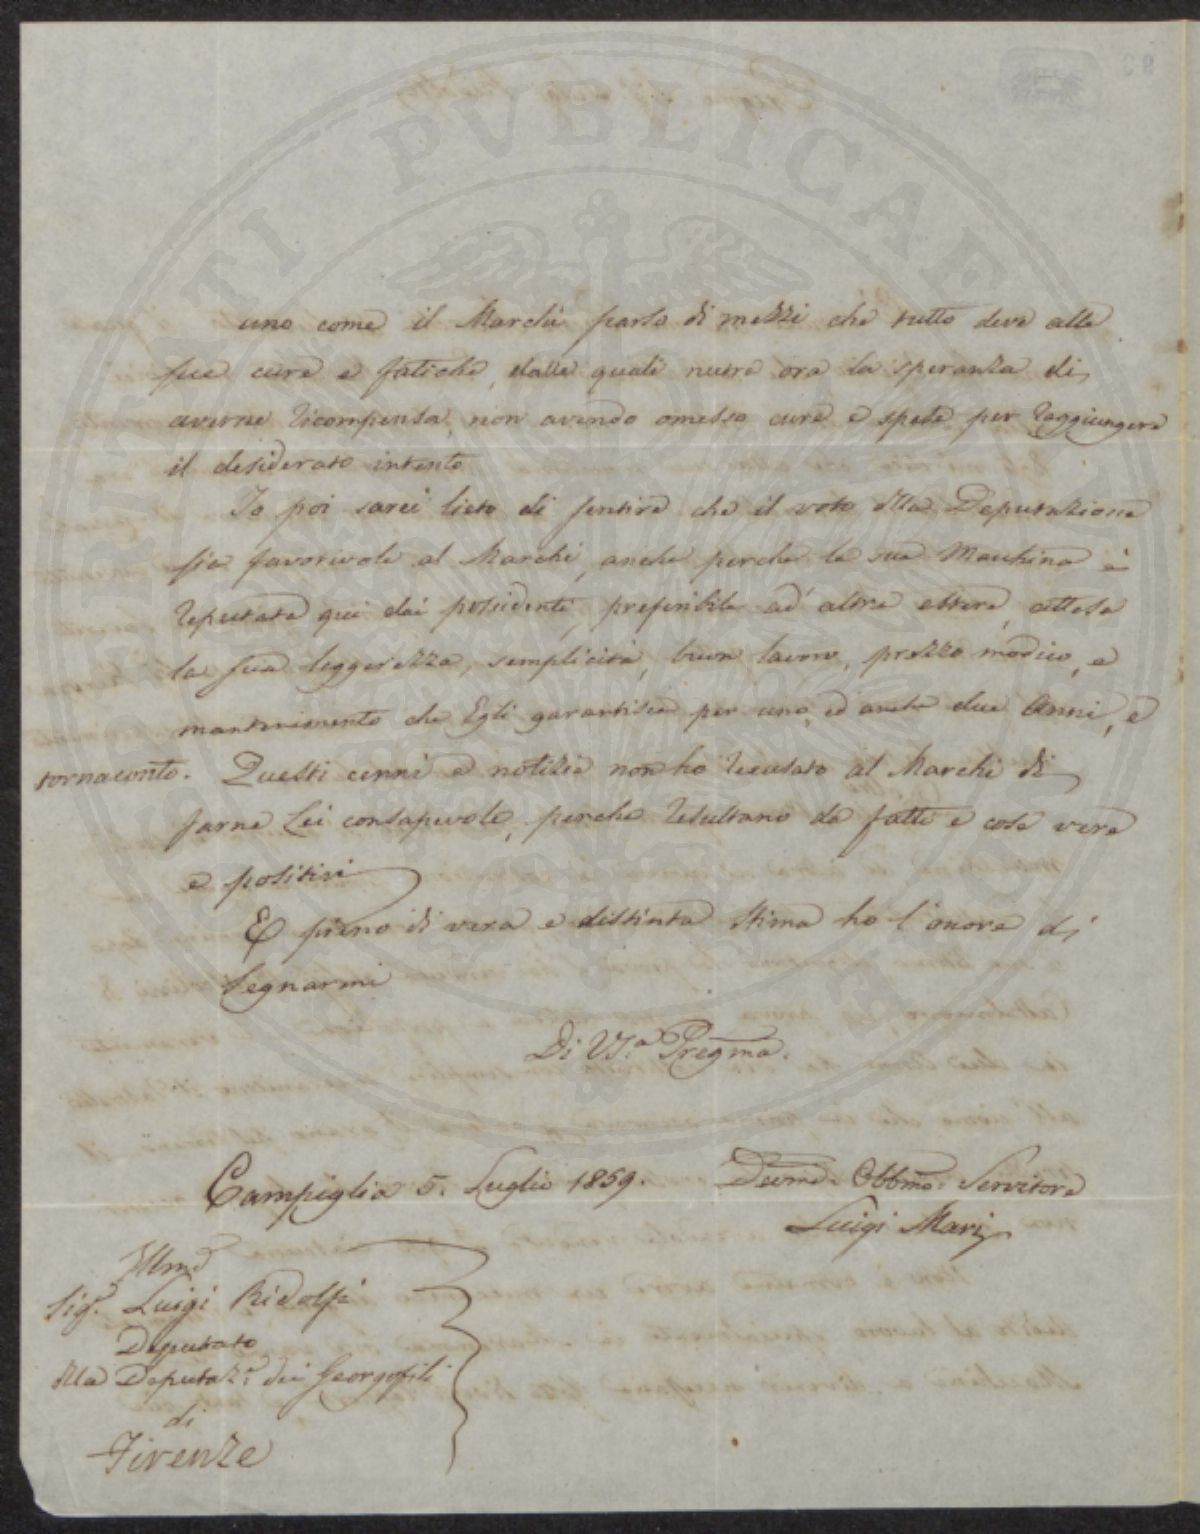 uno come il Marchi parlo di mezzi che tutto deve alle
sue cure e fatiche, dalle quali nutre ora la speranza di
averne ricompensa, non avendo omesso cure e spese per raggiungere
il desiderato intento
Io poi sarei lieto di sentire che il voto della Deputazione
sia favorevole al Marchi, anche perche la sua Macchina è
reputata qui dai possidenti, preferibile ad altre estere, attesa
la sua leggerezza, semplicità, buon lavoro, prezzo modico, e
mantenimento che Egli garantisce per uno, ed anche due Anni, e
tornaconto. Questi cenni e notizie non ho recusato al Marchi di
farne Lei consapevole, perche resultano da fatti e cose vere
e positivi
E pieno di vera e distinta stima ho l'onore di
segnarmi
Di VS.a Pregma.
Campiglia 5. Luglio 1859.
Devmo. Obbmo. Servitore
Luigi Mari
Illmo
Sigr. Luigi Ridolfi
Deputato
della Deputaz.e dei Georgofili
di
Firenze
PUBLICAE